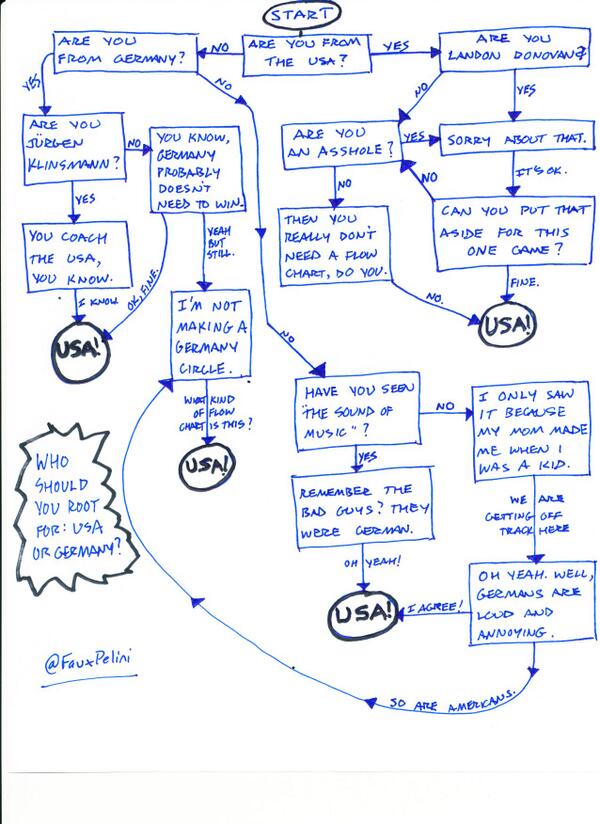 START
ARE YOU FROM
THE USA?
NO
YES
ARE YOU
FROM GERMANY?
ARE YOU
LANDON DONOVAN?
YES
NO
NO
YES
ARE YOU
JÜRGEN
KLINSMANN?
NO
YOU KNOW,
GERMANY
PROBABLY
DOESN'T
NEED TO WIN.
ARE YOU
AN ASSHOLE?
YES
SORRY ABOUT THAT.
YES
NO
NO
IT'S OK.
YOU COACH
THE USA,
YOU KNOW.
YEAH
BUT
STILL.
THEN YOU
REALLY DON'T
NEED A FLOW
CHART, DO YOU.
CAN YOU PUT THAT
ASIDE FOR THIS
ONE GAME?
I KNOW
OK, FINE.
NO.
FINE.
USA!
I'M NOT
MAKING A
GERMANY
CIRCLE.
USA!
NO
WHAT KIND
OF FLOW
CHART IS THIS?
USA!
HAVE YOU SEEN
"THE SOUND OF
MUSIC"?
NO
I ONLY SAW
IT BECAUSE
MY MOM MADE
ME WHEN I
WAS A KID.
YES
WHO
SHOULD
YOU ROOT
FOR: USA
OR GERMANY?
REMEMBER THE
BAD GUYS? THEY
WERE GERMAN.
WE ARE
GETTING OFF
TRACK HERE
OH YEAH!
USA!
I AGREE!
OH YEAH. WELL,
GERMANS ARE
LOUD AND
ANNOYING.
SO ARE AMERICANS.
@FauxPelini